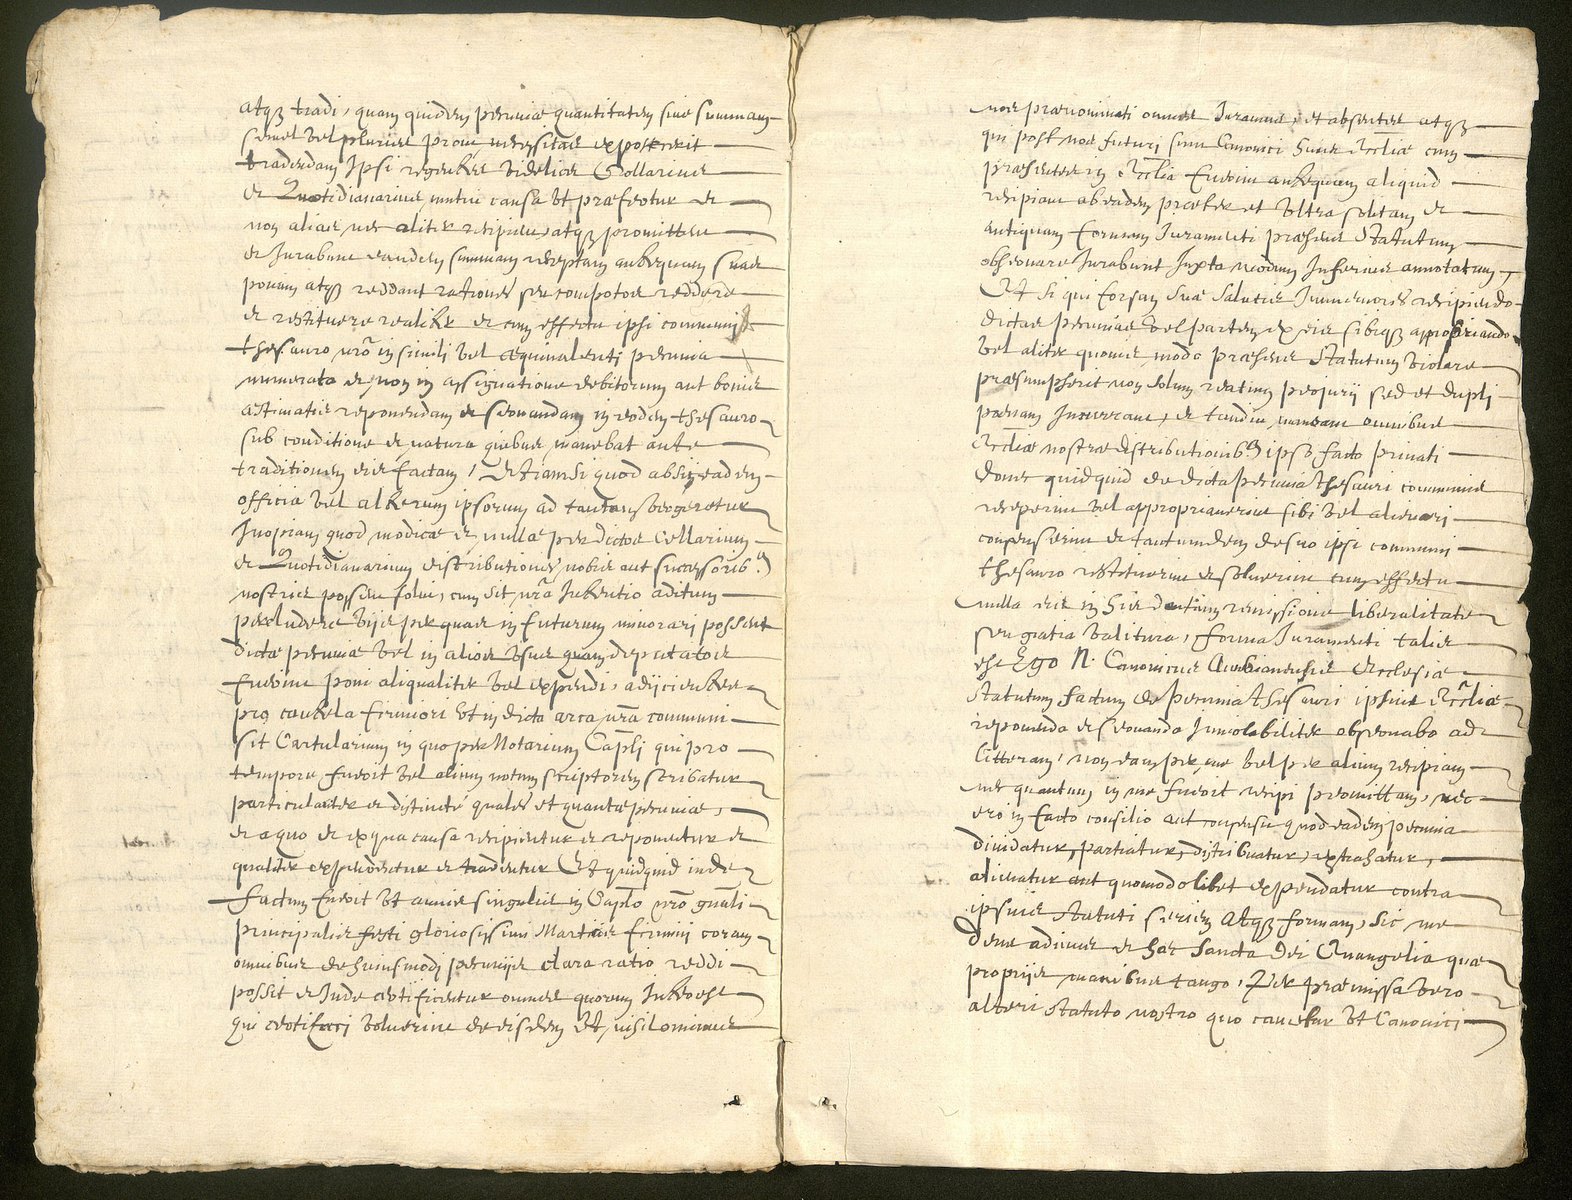 atq₃ tradi, quam quidem pecuniæ quantitatem siue summam
semel vel pluries prout necessitas exposcerit
tradendam ipsi regentes videlicet Cellarius
et Quotidianarius, mutui causa vt præfertur et
non alias nec aliter recipient, atq₃ promittent
et Jurabunt eandem summam receptam antequam suas
ponant atq₃ reddant rationes seu computos reddere
et restituere realiter et cum effectu ipsi communi
thesauro nrõ in simili vel æquiualenti pecunia
numerata et non in assignatione debitorum aut bonis
æstimatis reponendam et seruandam in eodem thesauro
sub conditione et natura quibus manebat ante
traditionem eis factam, Etiamsi quod absit eadem
officia vel alterum ipsorum ad tantam vergeretur
Inopiam quod modicæ et nullæ per dictos Cellarium
et Quotidianarium distributiones nobis aut successorib⁹
nostris possent solui, cum sit nrã Intentio aditum
præcludere vijs per quas in futurum minorari possent
dictæ pecuniæ vel in alios vsus quam deputatos
fuerint poni aliqualiter vel expendi, adijcientes
pro cautela firmiori vt in dicta arca nrã communi
sit Cartularium in quo per Notarium Capl̃i qui pro
tempore fuerit vel alium notum scriptorem scribatur
particulariter et distincté quales et quantæ pecuniæ,
et a quo et ex qua causa recipientur et reponentur et
qualiter expendentur et tradentur Et quidquid inde
factum fuerit vt annis singulis in Capl̃o nrõ gnãli
principalis festi gloriosissimi Martiris firmini coram
omnibus de huiusmodi pecunijs clara ratio reddi
possit et Inde certificentur omnes quorum Interest
qui certifieri voluerint de eisdem Et, nisilominus
nos prænominati omnes Juramus, et absentes atq₃
qui post nos futuri sunt Canonici huius Ecclĩæ cum
præsentes in Ecclĩa fuerint antequam aliquid
recipiant ab eadem præter et vltra solitam et
antiquam formam Juramenti præsens Statutum
obseruare Jurabunt Juxta modum Inferius annotatum,
Et si qui forsan suæ salutis Immemores recipiendo
dictas pecunias vel partem ex eis sibiq₃ appropriando
vel aliter quouis modo præsens Statutum violare
præsumpserit non solum reatum periurij sed et dupli
pœnam Incurrant, et tandiu maneant omnibus
Ecclĩæ nostræ distributionib⁹ ipso facto priuati
donec quidquid de dicta pecunia thesauri communis
receperint vel appropriauerint sibi vel alienari
consenserint et tantumdem de suo ipsi communi
thesauro restituerint et soluerint cum effectu
nulla eis in his dantium remissione liberalitate
seu gratia valitura, forma Juramenti talis
est Ego N. Canonicus Ambianensis Ecclesiæ
Statutum factum de pecunia thesauri ipsius Ecclĩæ
reponenda et seruanda Inuiolabiliter obseruabo ad
litteram, non eam per me vel per alium recipiam
nec quantum in me fuerit recipi permittam, nec
ero in facto consilio aut consensu quod eadem pecunia
diuidatur, partiatur, distribuatur, extrahatur,
alienatur aut quomodolibet expendatur contra
ipsius statuti seriem atq₃ formam, sic me
Deus adiuuet et hæc Sancta Dei Euangelia quæ
proprijs manibus tango, Per præmissa vero
alteri Statuto nostro quo cauetur vt Canonici